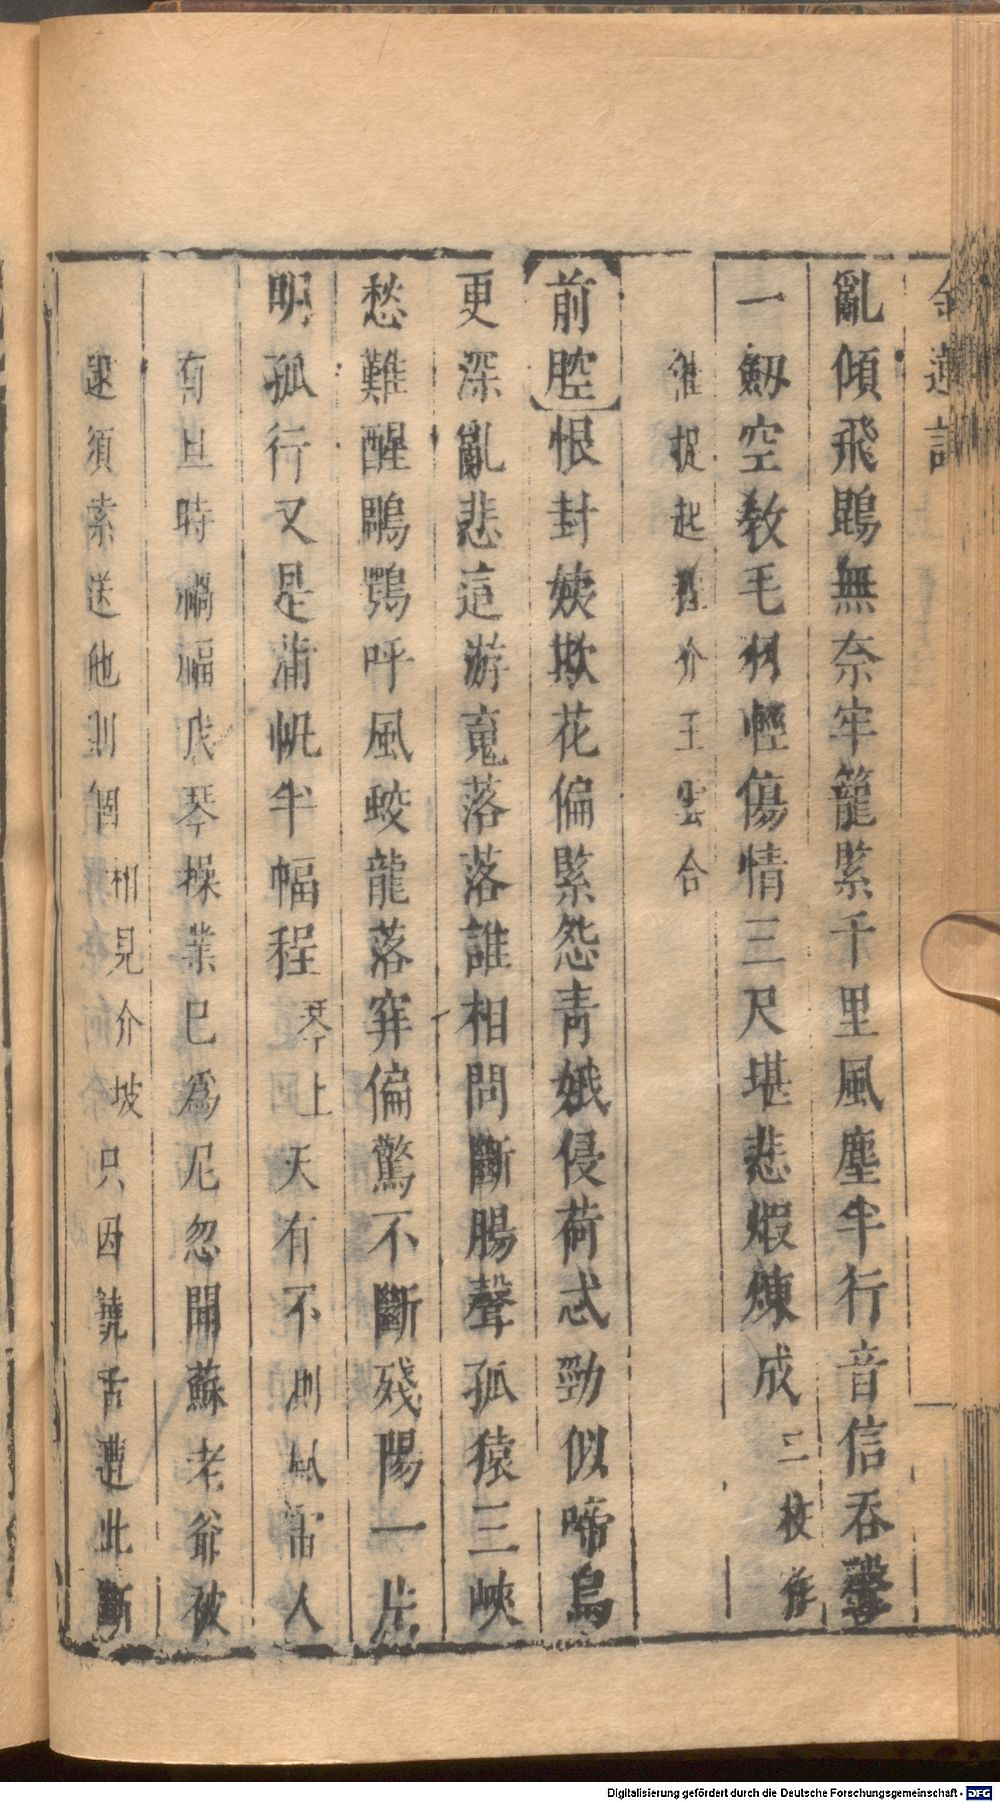 金蓮記
亂傾飛鶂無奈牢籠緊千里風塵半行音信吞聲
一劔空教毛羽輕傷情三尺堪悲煆煉成二校存
雀捉起推介王雲合
前腔恨封姨欺花偏緊怨青娥侵荷忒勁似啼烏
更深亂悲這游䰟落落誰相問斷腸聲孤猿三峽
愁難醒鵰鶚呼風蛟龍落穽偏驚不斷殘陽一片
明孤行又是蒲帆半幅程琴上天有不測風雷人
有旦時禍福我琴操業已爲尼忽聞蘇老爺被
逮須索送他則個相見介坡只因饒舌遭此斷
Digitalisierung gefördert durch die Deutsche Forschungsgemeinschaft - DFG